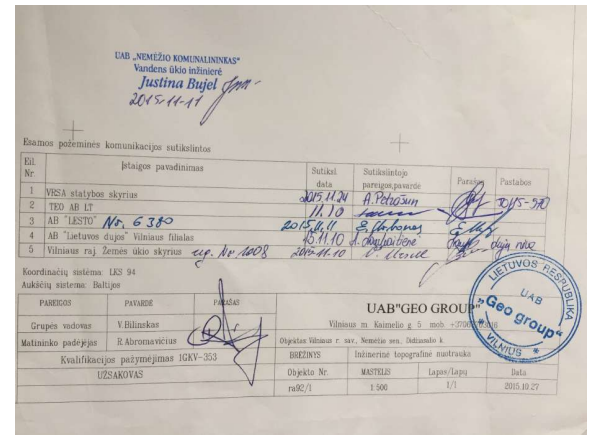 UAB „NEMĖŽIO KOMUNALININKAS"
Vandens ūkio inžinierė
Justina Bujel
2015-11-11
Esamos požeminės komunikacijos sutikslintos
Eil. Nr. Įstaigos pavadinimas Sutiksl. data Sutikslintojo pareigos,pavardė Parašas Pastabos
1 VRSA statybos skyrius 2015.11.24 A. Petrošun
2 TEO AB LT 11.10
3 AB "LESTO" Nr. 6380 2015.11.11
4 AB "Lietuvos dujos" Vilniaus filialas 15.11.10 dujų nėra
5 Vilniaus raj. Žemės ūkio skyrius 2015-11-10
Koordinačių sistema: LKS 94
Aukščių sistema: Baltijos
PAREIGOS PAVARDĖ PARAŠAS
Grupės vadovas V.Bilinskas
Matininko padėjėjas R.Abromavičius
Kvalifikacijos pažymėjimas 1GKV-353
UŽSAKOVAS
UAB"GEO GROUP"
Vilniaus m. Kaimelio g. 5 mob.
Objektas Vilniaus r. sav., Nemėžio sen.,
BRĖŽINYS Inžinerinė topografinė nuotrauka
Objekto Nr. MASTELIS Lapas/Lapų Data
ra92/1 1:500 1/1 2015.10.27
LIETUVOS RESPUBLIKA
UAB
„Geo group"
* VILNIUS *